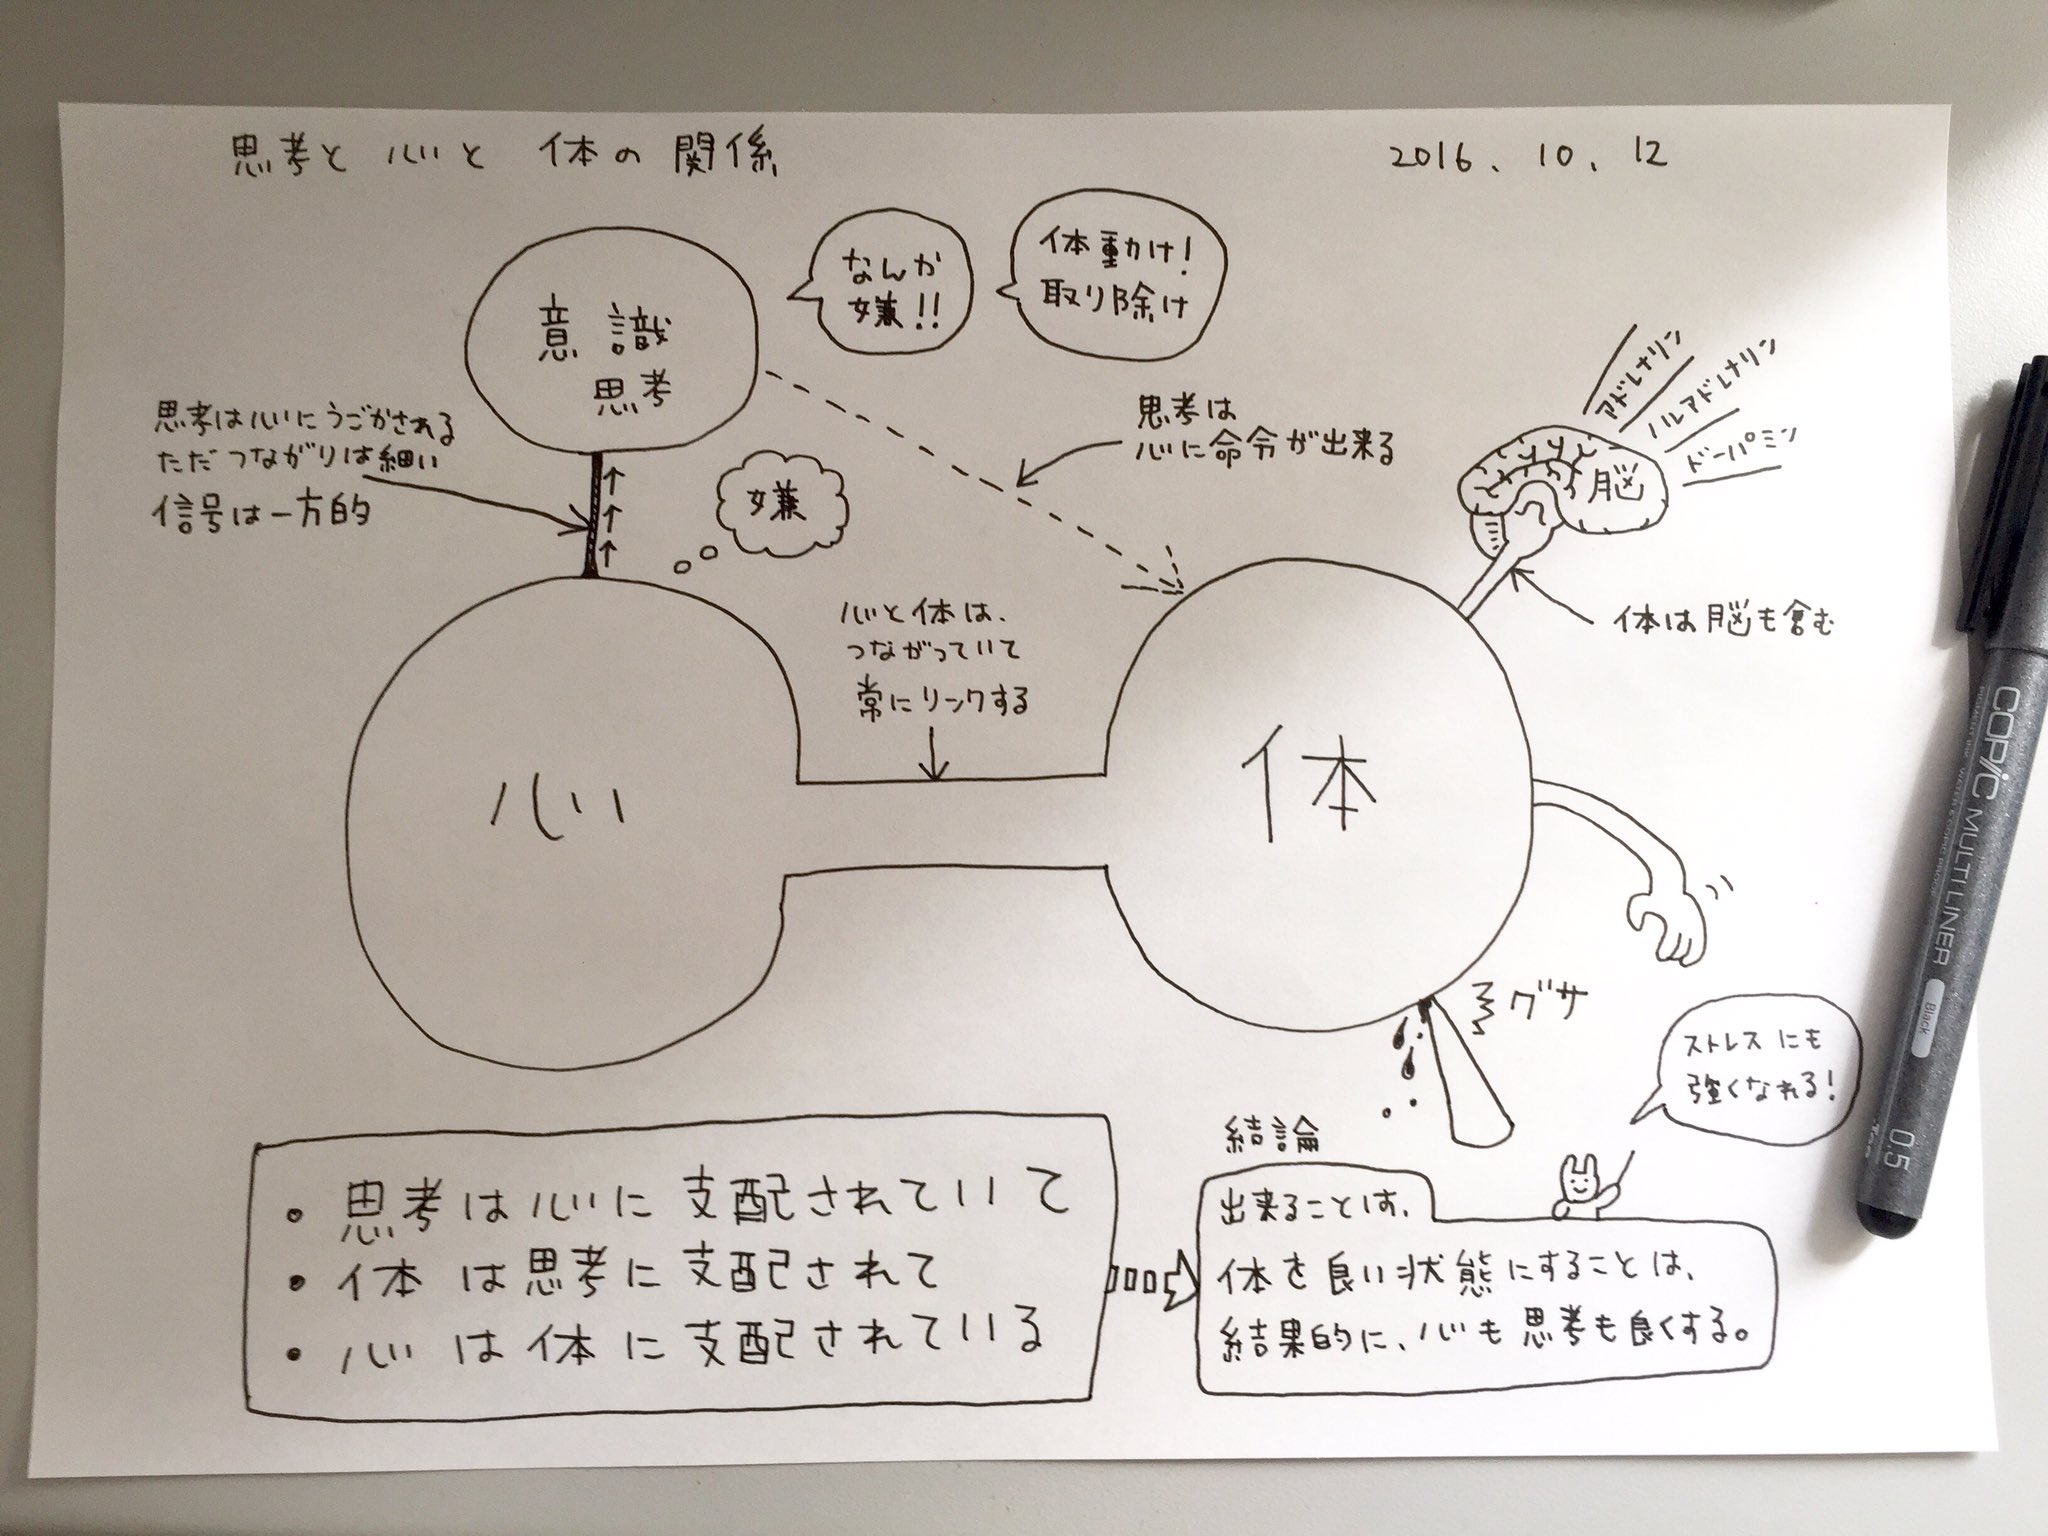 思考と心と体の関係
2016.10.12
なんか
嫌!!
体動け!
取り除け
意識
思考
思考は心にうごかされる
ただつながりは細い
信号は一方的
嫌
思考は
心に命令が出来る
アドレナリン
ノルアドレナリン
ドーパミン
脳
体は脳も含む
心と体は、
つながっていて
常にリンクする
心
体
グサ
ストレスにも
強くなれる!
・思考は心に支配されていて
・体は思考に支配されて
・心は体に支配されている
結論
出来ることは、
体を良い状態にすることは、
結果的に、心も思考も良くする。
COPIC MULTILINER
Black
0.5